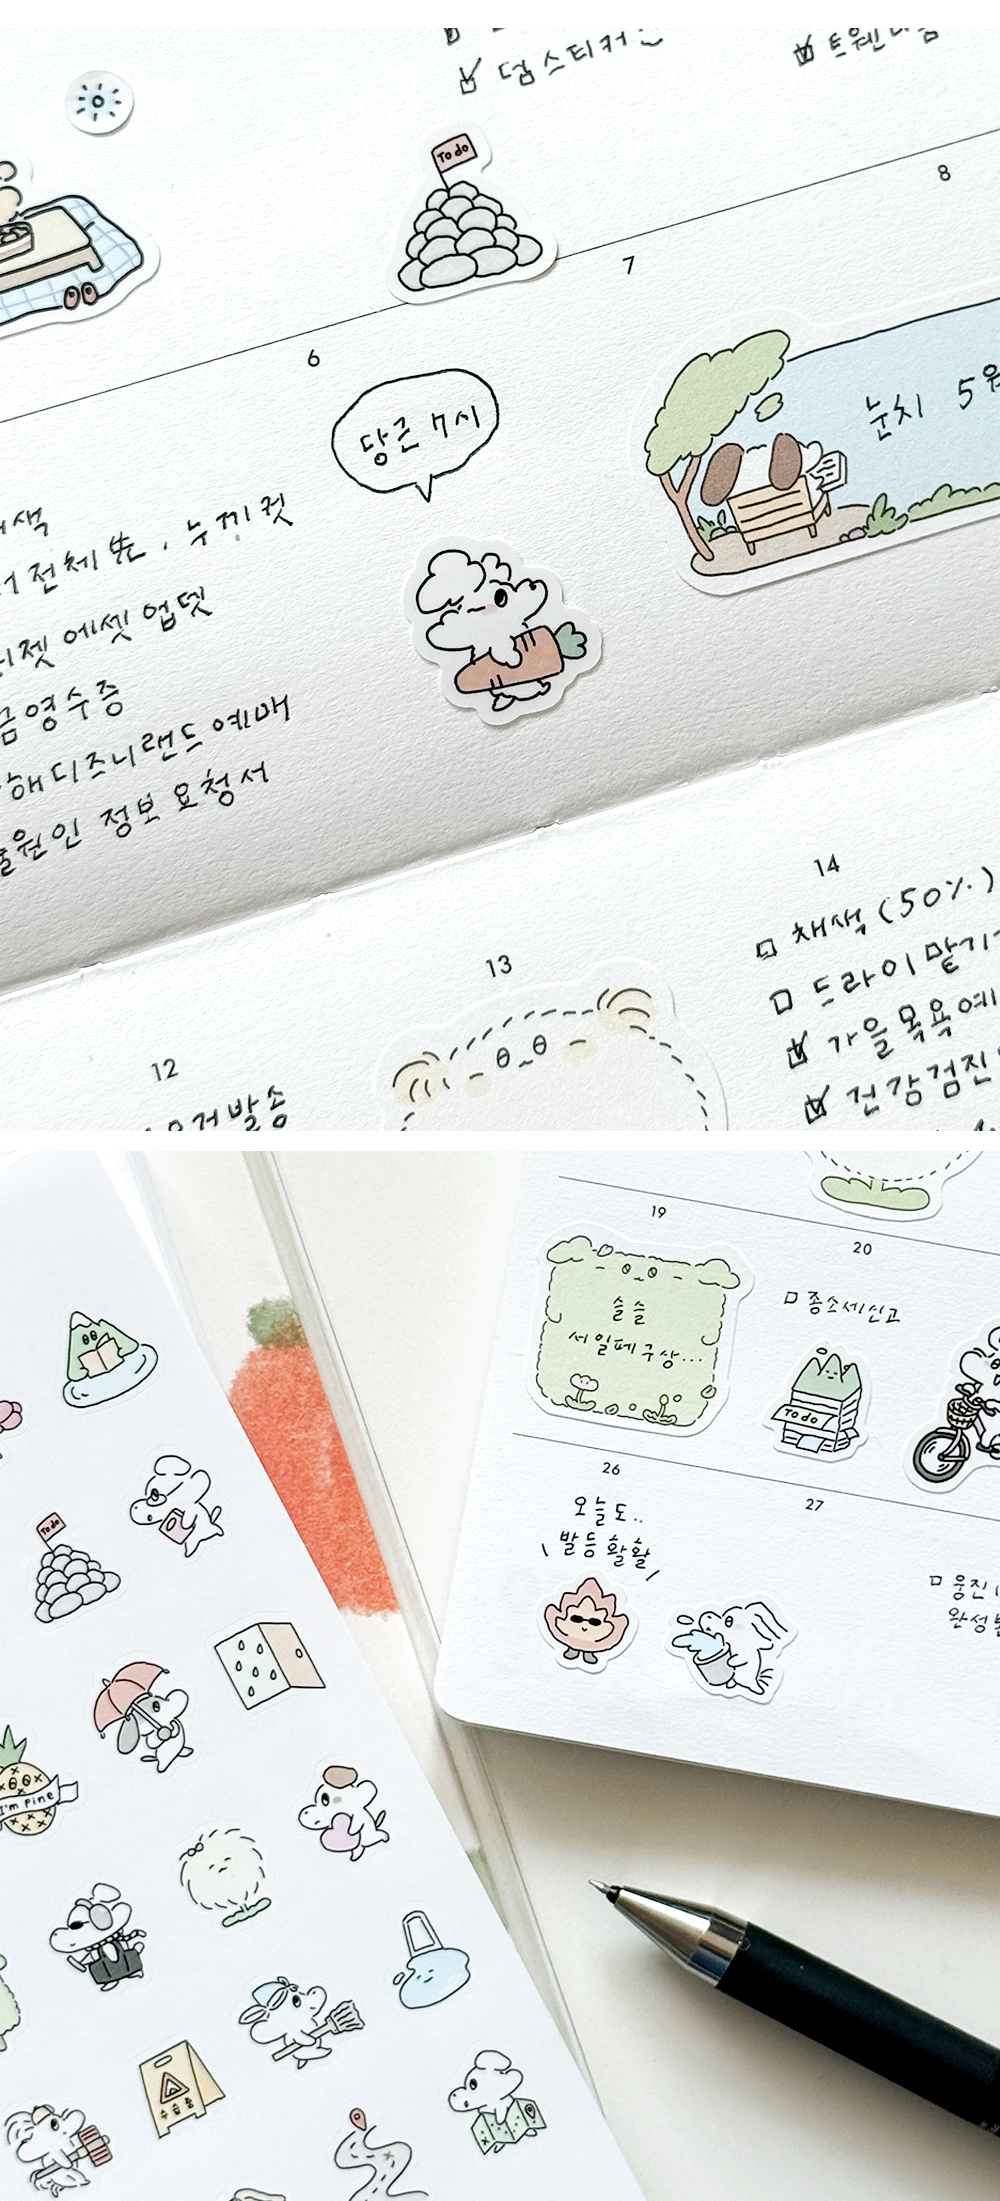 덤스티커
To do
8
7
6
당근 7시
눈치 5
전체 뽄, 누끼컷
에셋 업뎃
금영수증
해디즈니랜드 예매
원인 정보 요청서
14
채색 (50%)
드라이 맡기
가을 목욕 예
건강검진
13
12
발송
19
슬슬
서일페 구상...
20
종소세신고
To do
26
오늘도..
발등 활활
27
웅진
완성
To do
I'm Fine
수습중